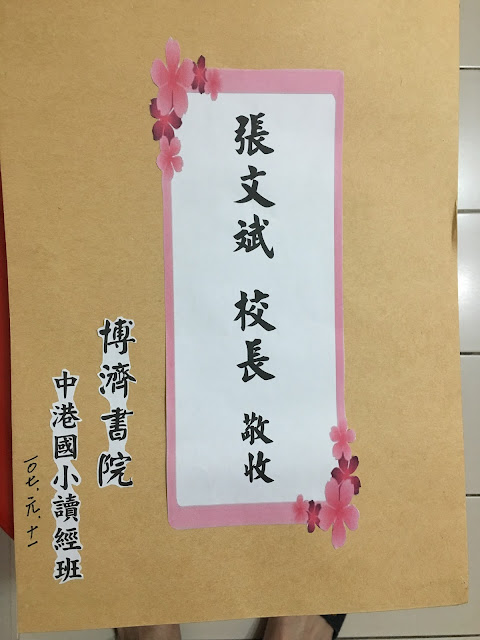 張文斌 校長 敬收
博濟書院
中港國小讀經班
一〇七.元.十一